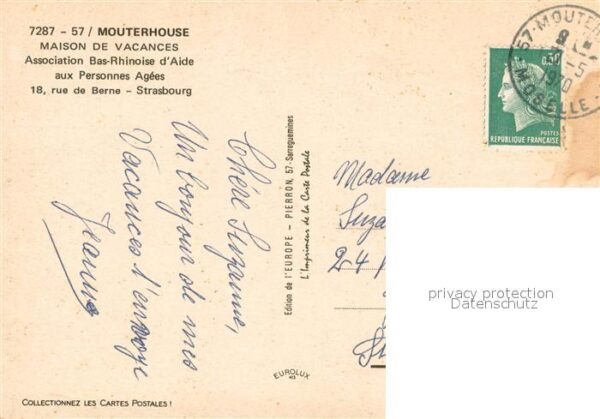 7287 - 57 / MOUTERHOUSE
MAISON DE VACANCES
Association Bas-Rhinoise d'Aide
aux Personnes Agées
18, rue de Berne - Strasbourg
Chère Suzanne,
Un bonjour de mes
Vacances t'envoye
Jeanne
Edition de l'EUROPE - PIERRON, 57-Sarreguemines
L'Imprimeur de la Carte Postale
57-MOUTER
1970
MOSELLE
0,30
POSTES
REPUBLIQUE FRANÇAISE
Madame
Suza
24
privacy protection
Datenschutz
EUROLUX
COLLECTIONNEZ LES CARTES POSTALES !